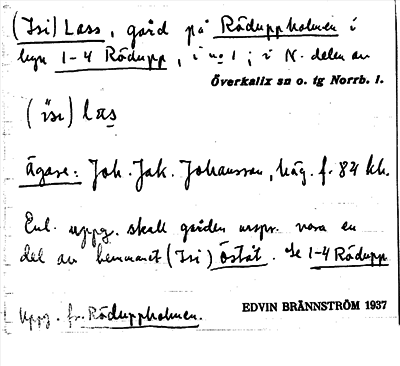 (Isi) Lass, gård på Räduppholmen i
byn 1-4 Rödupp, i no 1; i N. delen av
Överkalix sn o. tg Norrb. l.
(ìsı) las
ägare: Joh. Jak. Johansson, häg. f. 84 kh.
Enl. uppg. skall gården urspr. vara en
del av hemmanet (Isi) Öståt. Se 1-4 Rödupp
Uppg. fr. Räduppholmen.
EDVIN BRÄNNSTRÖM 1937